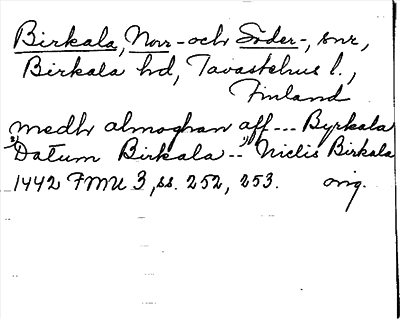 Birkala, Norr- och Söder-, snr,
Birkala hd, Tavastehus l.,
Finland
medh almoghan aff --- Byrkala
"Datum Birkala --" Niclis Birkala
1442 FMU 3, ss. 252, 253. orig.